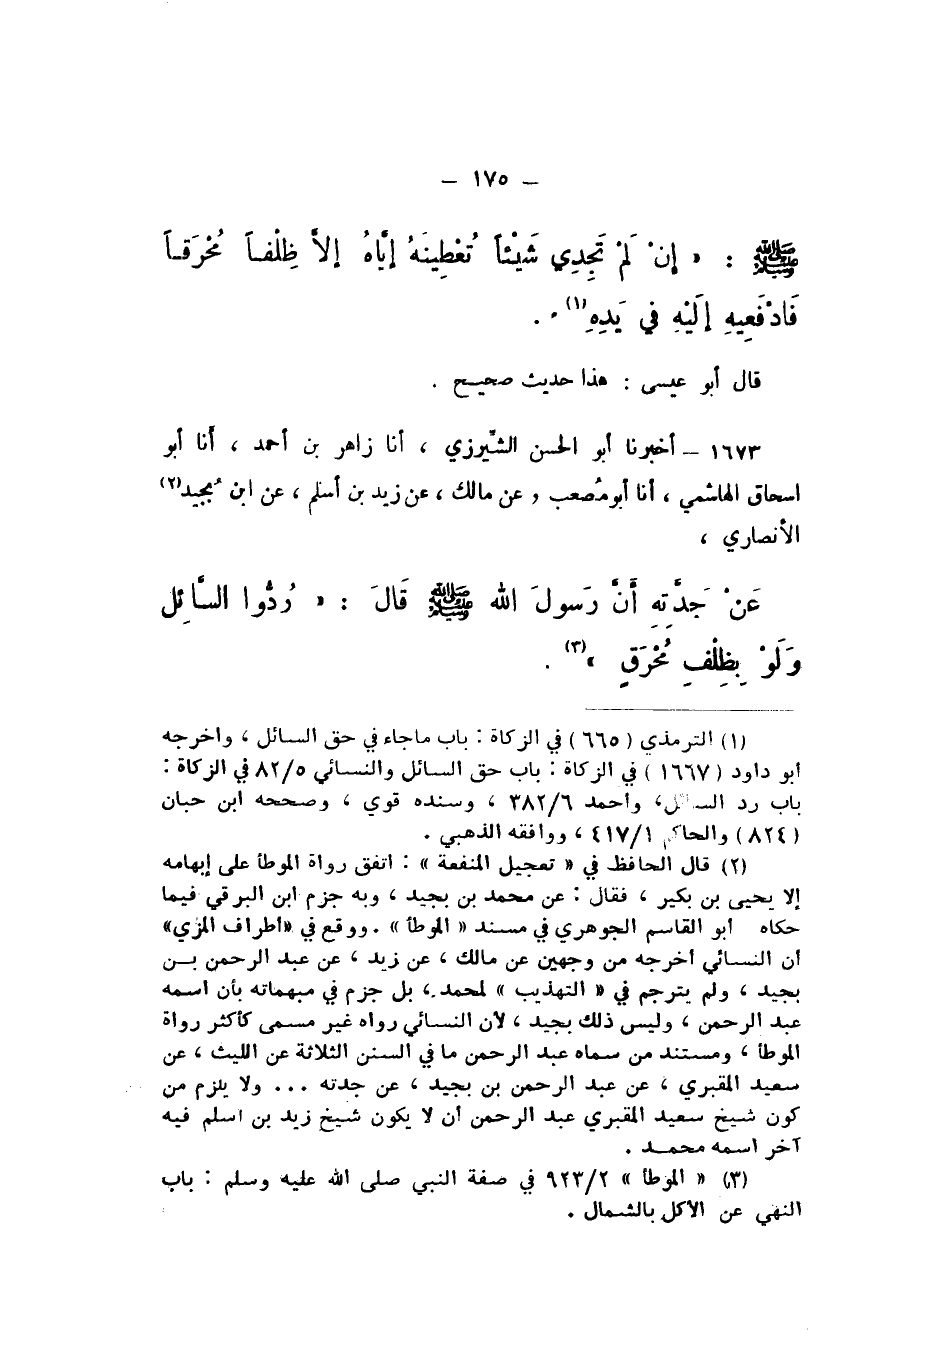 – ١٧٥ –
ﷺ : « إِنْ لَمْ تَجِدِي شَيْئاً تُعْطِينَهُ إِيَّاهُ إِلاَّ ظِلْفاً مُحْرَقاً
فَادْفَعِيهِ إِلَيْهِ فِي يَدِهِ (١) » .
قال أبو عيسى : هذا حديث صحيح .
١٦٧٣ – أخبرنا أبو الحسن الشِّيرزي ، أنا زاهر بن أحمد ، أنا أبو
اسحاق الهاشمي ، أنا أبو مُصعب ، عن مالك ، عن زيد بن أسلم ، عن ابن بُجيد(٢)
الأنصاري ،
عَنْ جَدَّتِهِ أَنَّ رَسولَ الله ﷺ قَالَ : « رُدُّوا السَّائِلَ
وَلَوْ بِظِلْفٍ مُحْرَقٍ » (٣) .
(١) الترمذي ( ٦٦٥ ) في الزكاة : باب ماجاء في حق السائل ، واخرجه
أبو داود ( ١٦٦٧ ) في الزكاة : باب حق السائل والنسائي ٨٢/٥ في الزكاة :
باب رد السائل، وأحمد ٣٨٢/٦ ، وسنده قوي ، وصححه ابن حبان
( ٨٢٤ ) والحاكم ٤١٧/١ ، ووافقه الذهبي .
(٢) قال الحافظ في « تعجيل المنفعة » : اتفق رواة الموطأ على إبهامه
إلا يحيى بن بكير ، فقال : عن محمد بن بجيد ، وبه جزم ابن البرقي فيما
حكاه أبو القاسم الجوهري في مسند « الموطأ » . ووقع في «أطراف المزي»
أن النسائي أخرجه من وجهين عن مالك ، عن زيد ، عن عبد الرحمن بن
بجيد ، ولم يترجم في « التهذيب » لمحمد ، بل جزم في مبهماته بأن اسمه
عبد الرحمن ، وليس ذلك بجيد ، لأن النسائي رواه غير مسمى كأكثر رواة
الموطأ ، ومستند من سماه عبد الرحمن ما في السنن الثلاثة عن الليث ، عن
سعيد المقبري ، عن عبد الرحمن بن بجيد ، عن جدته ... ولا يلزم من
كون شيخ سعيد المقبري عبد الرحمن أن لا يكون شيخ زيد بن اسلم فيه
آخر اسمه محمد .
(٣) « الموطأ » ٩٢٣/٢ في صفة النبي صلى الله عليه وسلم : باب
النهي عن الأكل بالشمال .